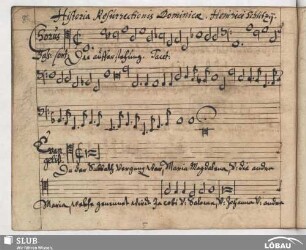 Historia Resurrectionis Dominicæ. Henrici Schützÿ.
Chorus
Die Aufferstehung. Tacet.
Evan
gelist
Da der Sabbath vergangen war, Maria Magdalena, V. die andere
Maria, welche genennet wird Jacobi V. Salome, V. Johanna V. andere
SLUB
Wir führen Wissen.
LÖBAU